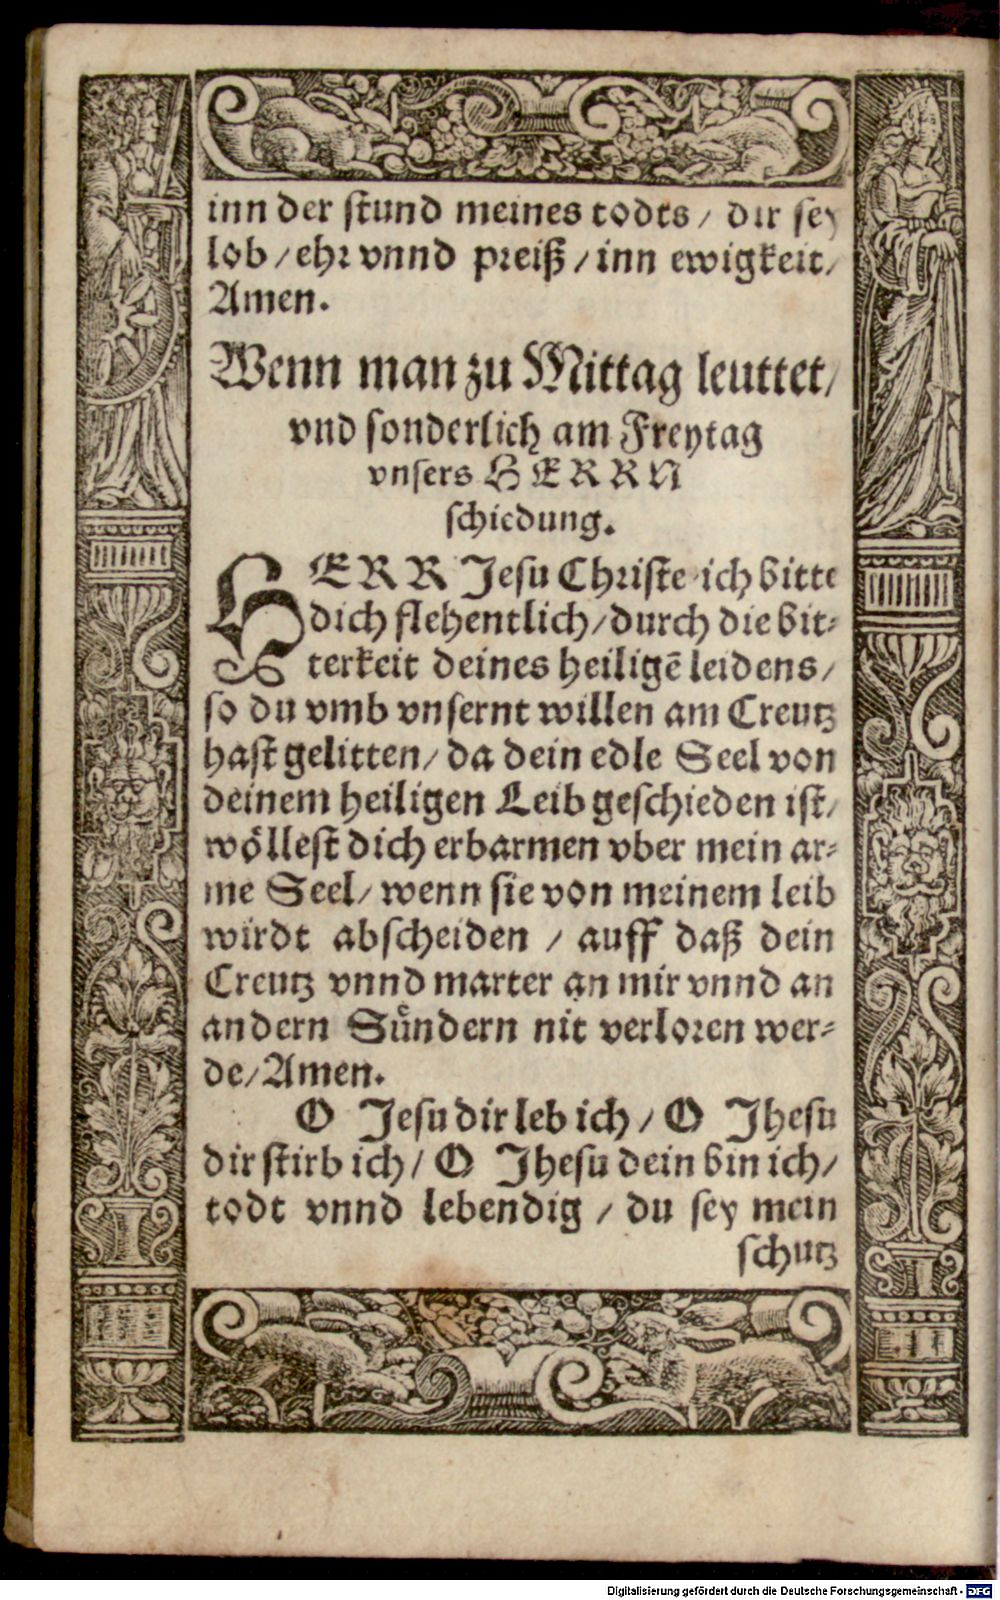 inn der stund meines todts / dir sey
lob / ehr vnnd preiß / inn ewigkeit /
Amen.
Wenn man zu Mittag leuttet /
vnd sonderlich am Freytag
vnsers HERRN
schiedung.
HERR Jesu Christe ich bitte
dich flehentlich / durch die bit⸗
terkeit deines heiligẽ leidens /
so du vmb vnsernt willen am Creutz
hast gelitten / da dein edle Seel von
deinem heiligen Leib geschieden ist /
woͤllest dich erbarmen vber mein ar⸗
me Seel / wenn sie von meinem leib
wirdt abscheiden / auff daß dein
Creutz vnnd marter an mir vnnd an
andern Suͤndern nit verloren wer⸗
de / Amen.
O Jesu dir leb ich / O Jhesu
dir stirb ich / O Jhesu dein bin ich /
todt vnnd lebendig / du sey mein
schutz
Digitalisierung gefördert durch die Deutsche Forschungsgemeinschaft - DFG